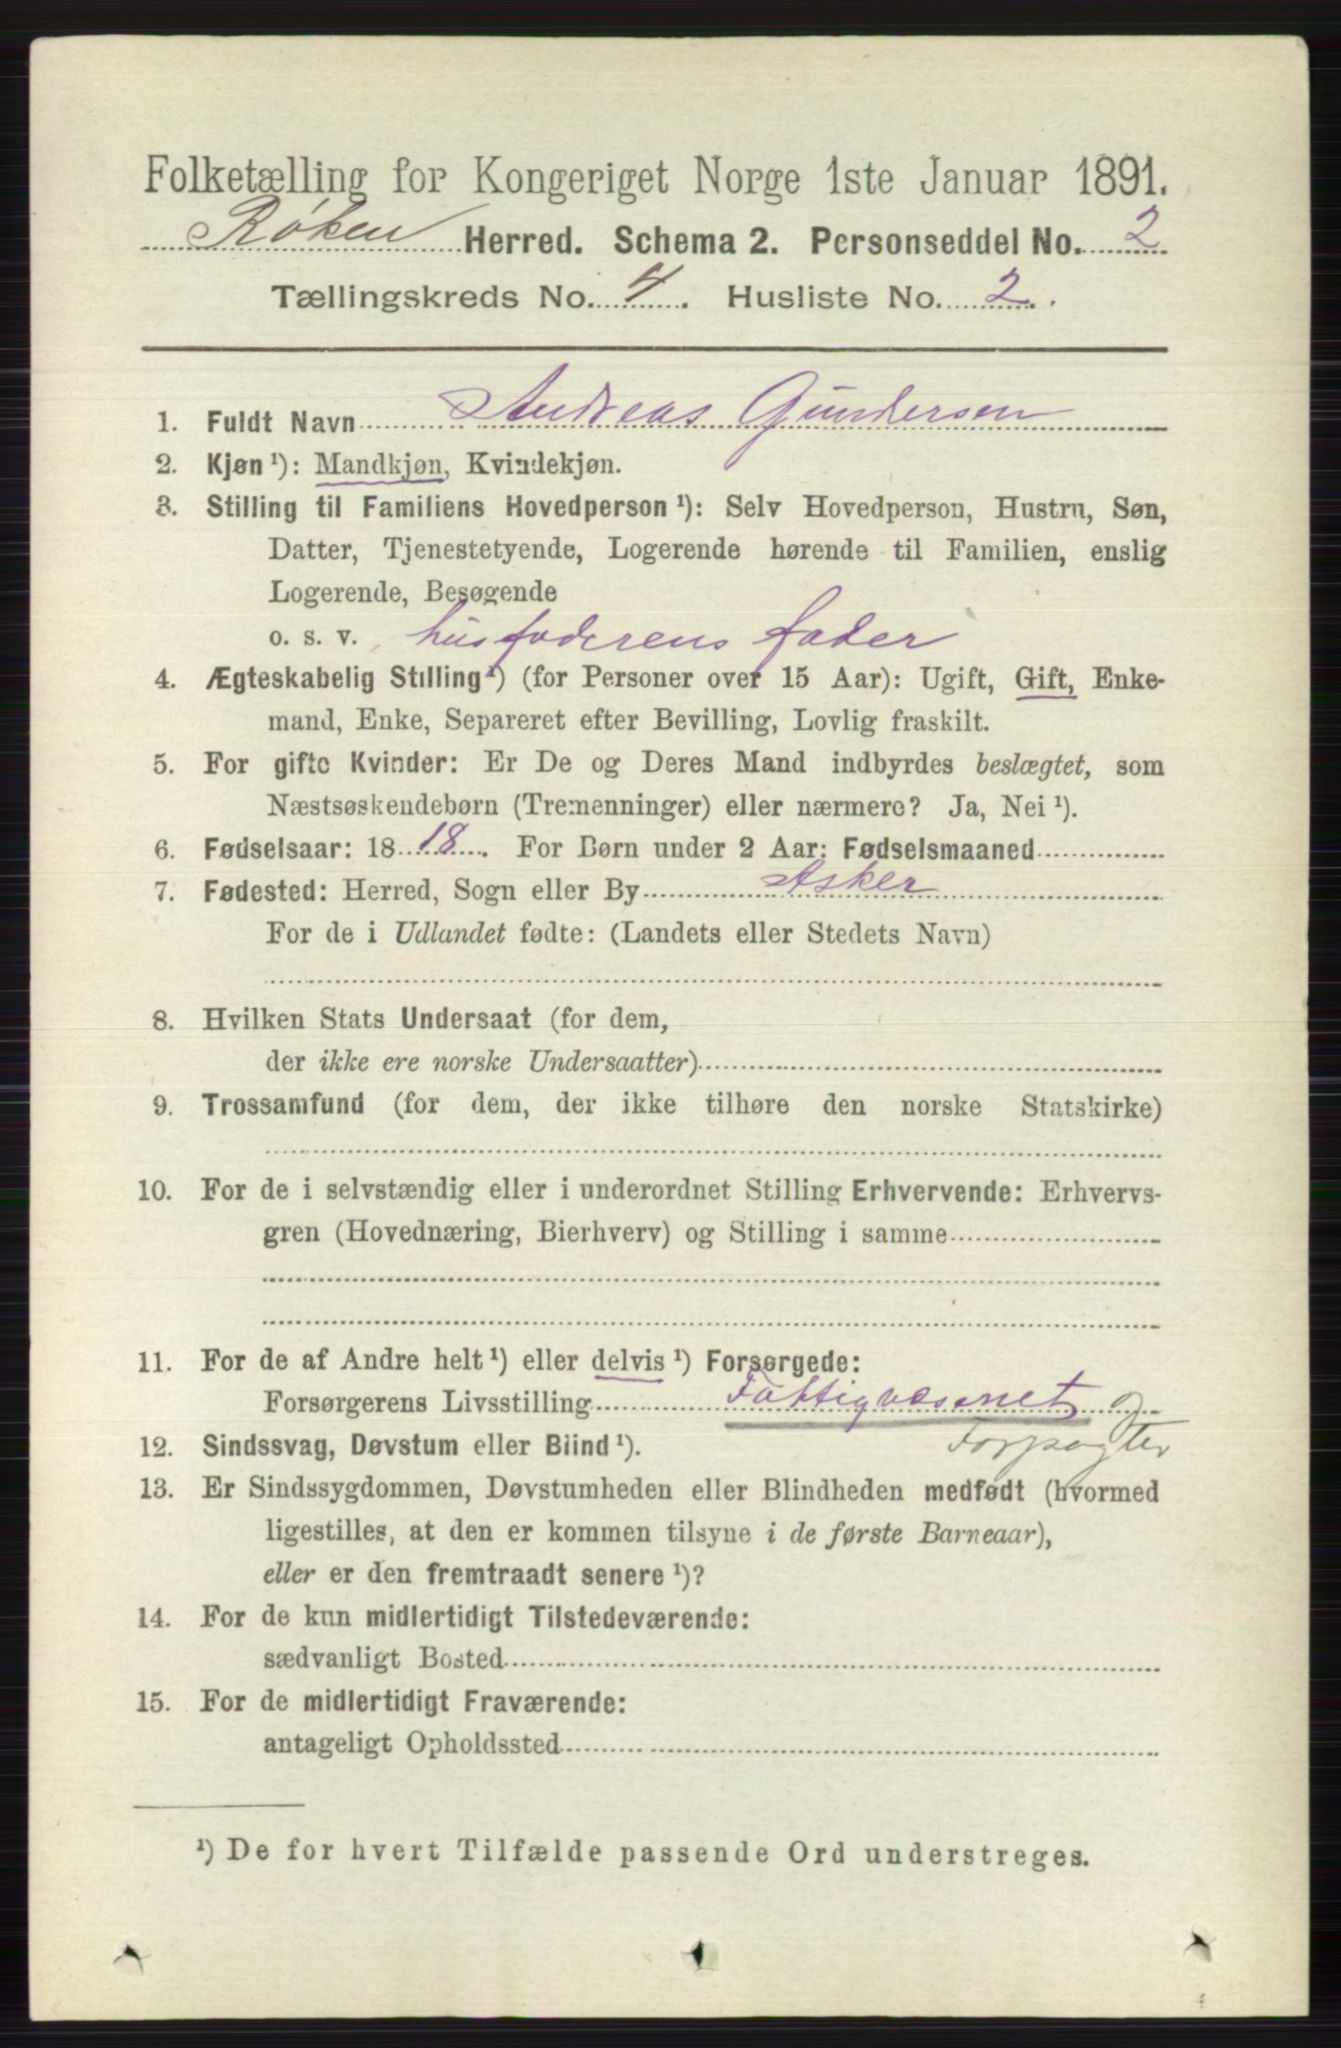 Folketælling for Kongeriget Norge 1ste Januar 1891.
Røken Herred. Schema 2. Personseddel No. 2
Tællingskreds No. 4. Husliste No. 2.
1. Fuldt Navn Andreas Gundersen
2. Kjøn ¹): Mandkjøn, Kvindekjøn.
3. Stilling til Familiens Hovedperson ¹): Selv Hovedperson, Hustru, Søn,
Datter, Tjenestetyende, Logerende hørende til Familien, enslig
Logerende, Besøgende
o. s. v. husfaderens fader
4. Ægteskabelig Stilling ¹) (for Personer over 15 Aar): Ugift, Gift, Enke-
mand, Enke, Separeret efter Bevilling, Lovlig fraskilt.
5. For gifte Kvinder: Er De og Deres Mand indbyrdes beslægtet, som
Næstsøskendebørn (Tremenninger) eller nærmere? Ja, Nei ¹).
6. Fødselsaar: 18 18. For Børn under 2 Aar: Fødselsmaaned
7. Fødested: Herred, Sogn eller By Asker
For de i Udlandet fødte: (Landets eller Stedets Navn)
8. Hvilken Stats Undersaat (for dem,
der ikke ere norske Undersaatter)
9. Trossamfund (for dem, der ikke tilhøre den norske Statskirke)
10. For de i selvstændig eller i underordnet Stilling Erhvervende: Erhvervs-
gren (Hovednæring, Bierhverv) og Stilling i samme
11. For de af Andre helt ¹) eller delvis ¹) Forsørgede:
Forsørgerens Livsstilling Fattigvæsenet og
Forpagter
12. Sindssvag, Døvstum eller Blind ¹).
13. Er Sindssygdommen, Døvstumheden eller Blindheden medfødt (hvormed
ligestilles, at den er kommen tilsyne i de første Barneaar),
eller er den fremtraadt senere ¹)?
14. For de kun midlertidigt Tilstedeværende:
sædvanligt Bosted
15. For de midlertidigt Fraværende:
antageligt Opholdssted
¹) De for hvert Tilfælde passende Ord understreges.